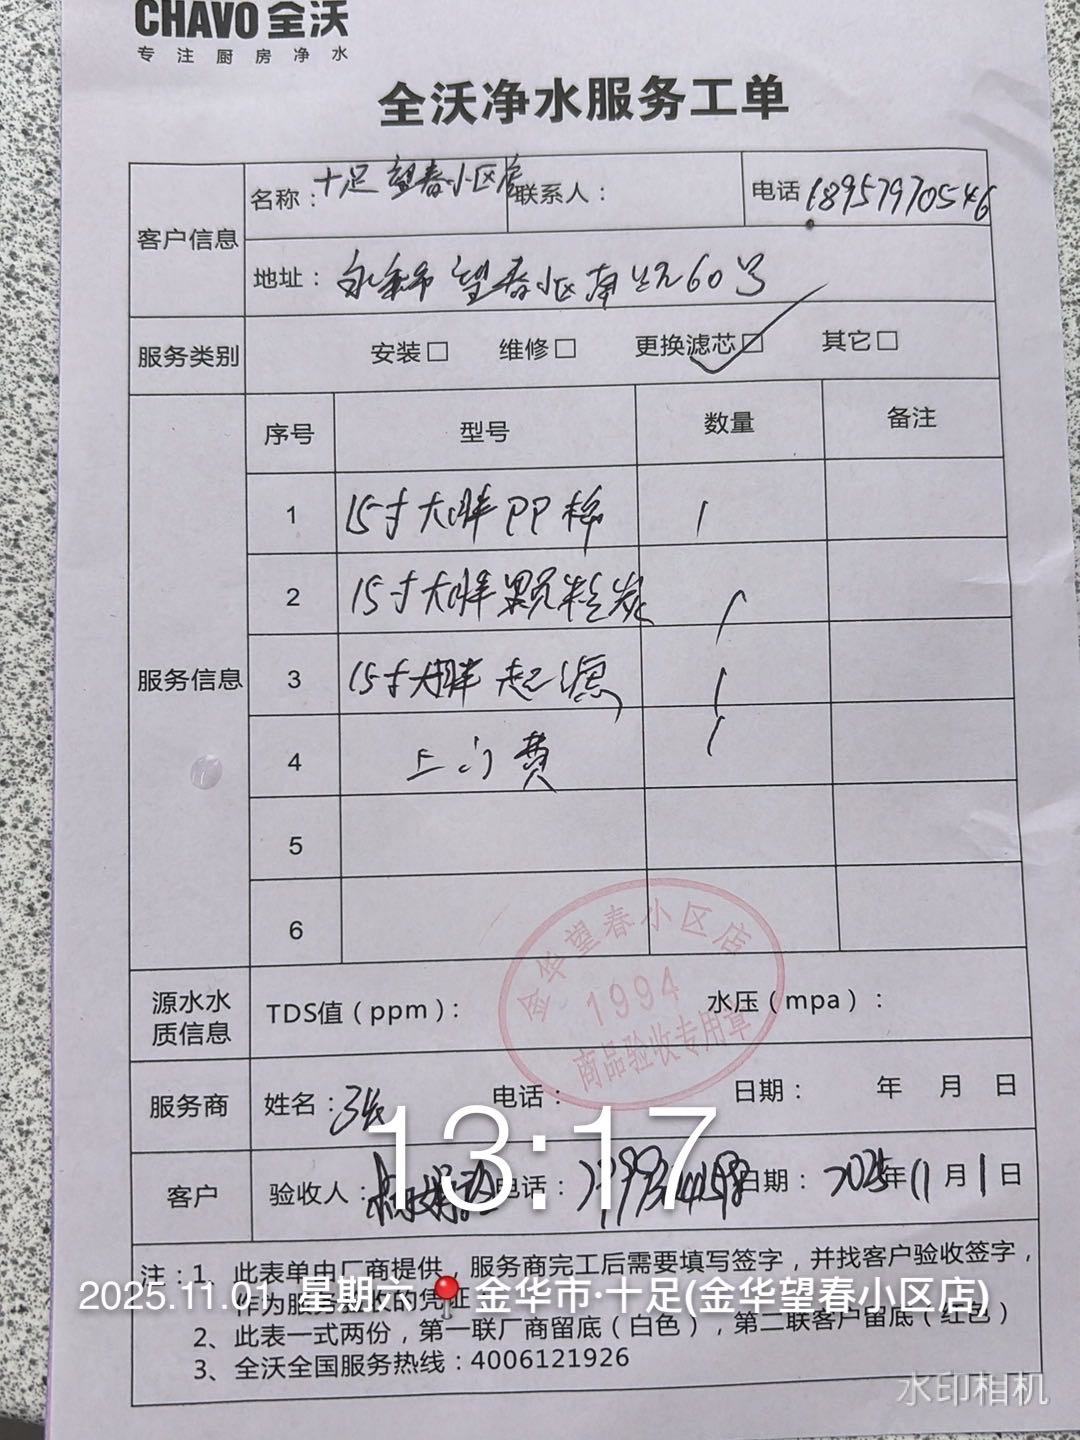 CHAVO 全沃
专注厨房净水
全沃净水服务工单
客户信息
名称：十足望春小区店 联系人： 电话 18957970546
地址：永康市望春小区南 60号
服务类别 安装□ 维修□ 更换滤芯☑ 其它□
服务信息
序号 型号 数量 备注
1 15寸大胖PP棉 1
2 15寸大胖颗粒炭 1
3 15寸大胖超滤 1
4 上门费 1
5
6
金华望春小区店
1994
商品验收专用章
源水水质信息 TDS值（ppm）： 水压（mpa）：
服务商 姓名： 电话： 日期： 年 月 日
13:17
客户 验收人： 电话： 日期：2025年11月1日
注：1、此表单由厂商提供，服务商完工后需要填写签字，并找客户验收签字，
作为服务 的凭证
2025.11.01 星期六 金华市·十足(金华望春小区店)
2、此表一式两份，第一联厂商留底（白色），第二联客户留底（红色）
3、全沃全国服务热线：4006121926
水印相机